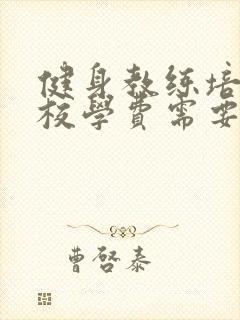 健身教练培
校学费需要
曹啓泰